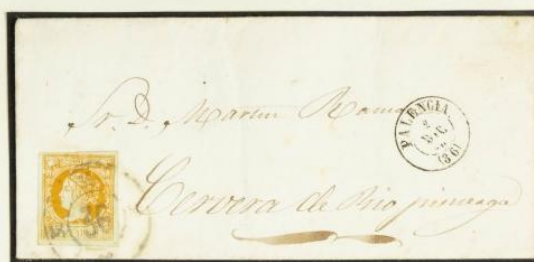 Sr. D. Martin Ramos
PALENCIA
2
DIC.
(36)
36
Cervera de Rio pisuerga